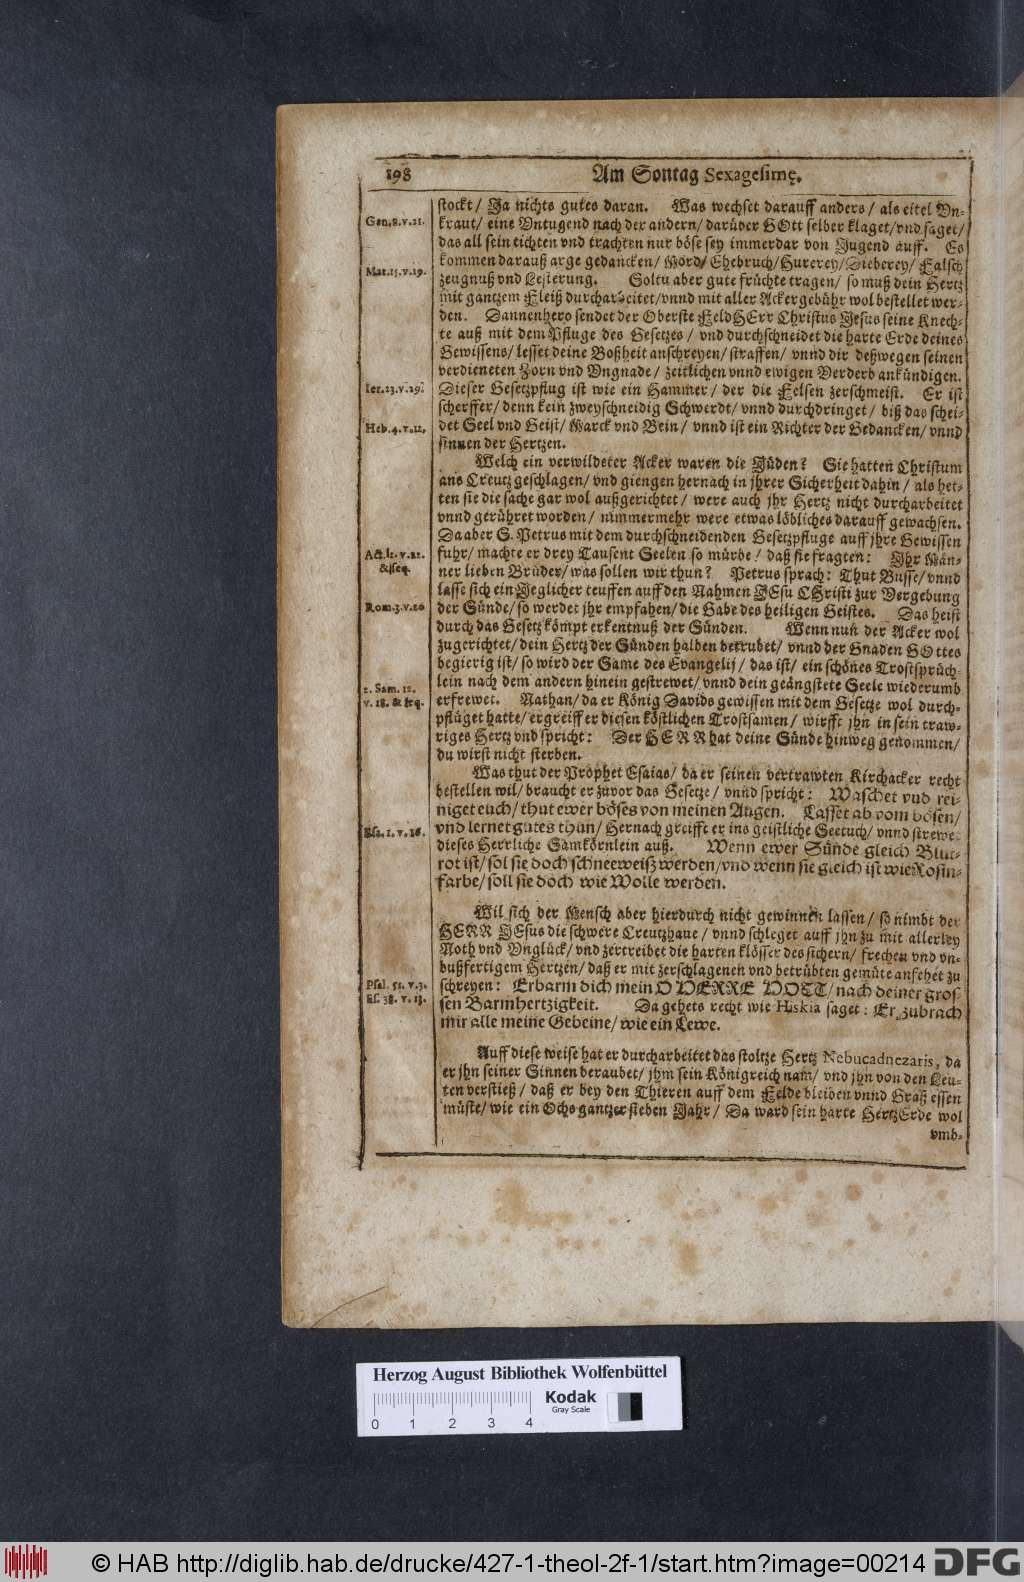 198
Am Sontag Sexagesimę.
stockt/ Ja nichts gutes daran. Was wechset darauff anders/ als eitel Vn-
Gen. 8. v. 21.
kraut/ eine Vntugend nach der andern/ darüber GOtt selber klaget/ vnd saget/
das all sein tichten vnd trachten nur böse sey immerdar von Jugend auff. Es
kommen darauß arge gedancken/ Mord/ Ehebruch/ Hurerey/ Dieberey/ Falsch
Mat. 15. v. 19.
zeugnuß vnd Lesterung. Soltu aber gute früchte tragen/ so muß dein Hertz
mit gantzem Fleiß durcharbeitet/ vnnd mit aller Ackergebühr wol bestellet wer-
den. Dannenhero sendet der Oberste FeldHErr Christus Jesus seine Knech-
te auß mit dem Pfluge des Gesetzes/ vnd durchschneidet die harte Erde deines
Gewissens/ lesset deine Boßheit anschreyen/ straffen/ vnnd dir deßwegen seinen
verdieneten Zorn vnd Vngnade/ zeitlichen vnnd ewigen Verderb ankündigen.
Ier. 23. v. 29.
Dieser Gesetzpflug ist wie ein Hammer/ der die Felsen zerschmeist. Er ist
scherffer/ denn kein zweyschneidig Schwerdt/ vnnd durchdringet/ biß das schei-
Heb. 4. v. 12.
det Seel vnd Geist/ Marck vnd Bein/ vnnd ist ein Richter der Gedancken/ vnnd
sinnen der Hertzen.
Welch ein verwildeter Acker waren die Jüden? Sie hatten Christum
ans Creutz geschlagen/ vnd giengen hernach in jhrer Sicherheit dahin/ als het-
ten sie die sache gar wol außgerichtet/ were auch jhr Hertz nicht durcharbeitet
vnnd gerühret worden/ nimmermehr were etwas löbliches darauff gewachsen.
Da aber S. Petrus mit dem durchschneidenden Gesetzpfluge auff jhre Gewissen
Act. 2. v. 21.
& seq.
fuhr/ machte er drey Tausent Seelen so mürbe/ daß sie fragten: Jhr Män-
ner lieben Brüder/ was sollen wir thun? Petrus sprach: Thut Busse/ vnnd
lasse sich ein Jeglicher teuffen auff den Nahmen JEsu CHristi zur Vergebung
Rom. 3. v. 20
der Sünde/ so werdet jhr empfahen/ die Gabe des heiligen Geistes. Das heist
durch das Gesetz kömpt erkentnuß der Sünden. Wenn nun der Acker wol
zugerichtet/ dein Hertz der Sünden halben betrübet/ vnnd der Gnaden GOttes
begierig ist/ so wird der Same des Evangelij/ das ist/ ein schönes Trostsprüch-
lein nach dem andern hinein gestrewet/ vnnd dein geängstete Seele wiederumb
2. Sam. 12.
v. 18. & seq.
erfrewet. Nathan/ da er König Davids gewissen mit dem Gesetze wol durch-
pflüget hatte/ ergreiff er diesen köstlichen Trostsamen/ wirfft jhn in sein traw-
riges Hertz vnd spricht: Der HERR hat deine Sünde hinweg genommen/
du wirst nicht sterben.
Was thut der Prophet Esaias/ da er seinen vertrawten Kirchacker recht
bestellen wil/ braucht er zuvor das Gesetze/ vnnd spricht: Waschet vnd rei-
niget euch/ thut ewer böses von meinen Augen. Lasset ab vom bösen/
Esa. 1. v. 16.
vnd lernet gutes thun/ Hernach greifft er ins geistliche Seetuch/ vnnd strewet
dieses Herrliche Samkörnlein auß. Wenn ewer Sünde gleich Blut-
rot ist/ sol sie doch schneeweiß werden/ vnd wenn sie gleich ist wie Rosin-
farbe/ soll sie doch wie Wolle werden.
Wil sich der Mensch aber hierdurch nicht gewinnen lassen/ so nimbt der
HERR JEsus die schwere Creutzhaue/ vnnd schleget auff jhn zu mit allerley
Noth vnd Vnglück/ vnd zertreibet die harten klösser des sichern/ frechen vnd vn-
bußfertigem Hertzen/ daß er mit zerschlagenen vnd betrübten gemüte anfehet zu
Psal. 51. v. 3.
schreyen: Erbarm dich mein O HERRE GOTT/ nach deiner gros-
Es. 38. v. 13.
sen Barmhertzigkeit. Da gehets recht wie Hiskia saget: Er zubrach
mir alle meine Gebeine/ wie ein Lewe.
Auff diese weise hat er durcharbeitet das stoltze Hertz Nebucadnezaris, da
er jhn seiner Sinnen beraubet/ jhm sein Königreich nam/ vnd jhn von den Leu-
ten verstieß/ daß er bey den Thieren auff dem Felde bleiben vnnd Graß essen
müste/ wie ein Ochs gantzer sieben Jahr/ Da ward sein harte HertzErde wol
vmb-
Herzog August Bibliothek Wolfenbüttel
0 1 2 3 4
Kodak
Gray Scale
© HAB http://diglib.hab.de/drucke/427-1-theol-2f-1/start.htm?image=00214
DFG